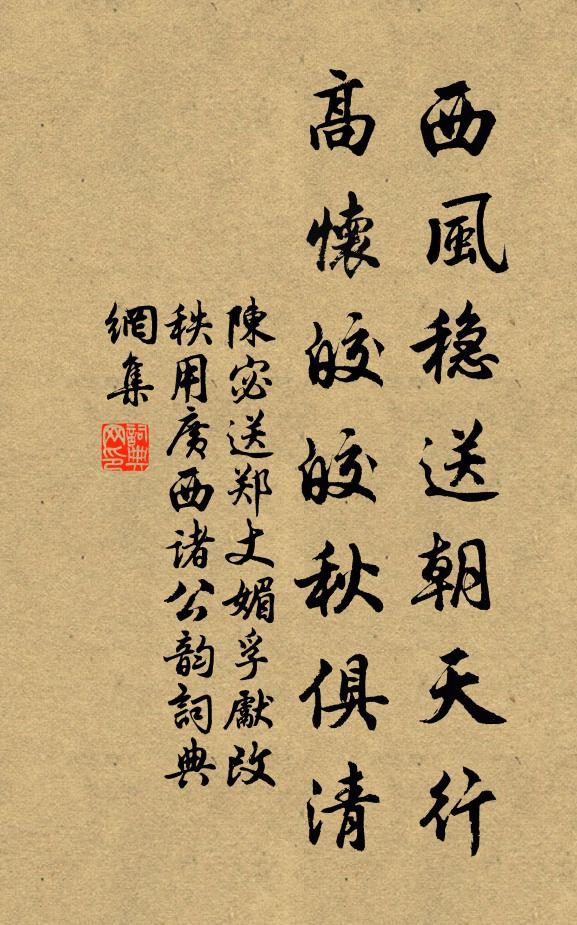 西風稳送朝天行
高懷皎皎秋俱清
陳宓送郑丈媚孚獻改
秩用廣西诸公韵詞典
網集
詞典
网印